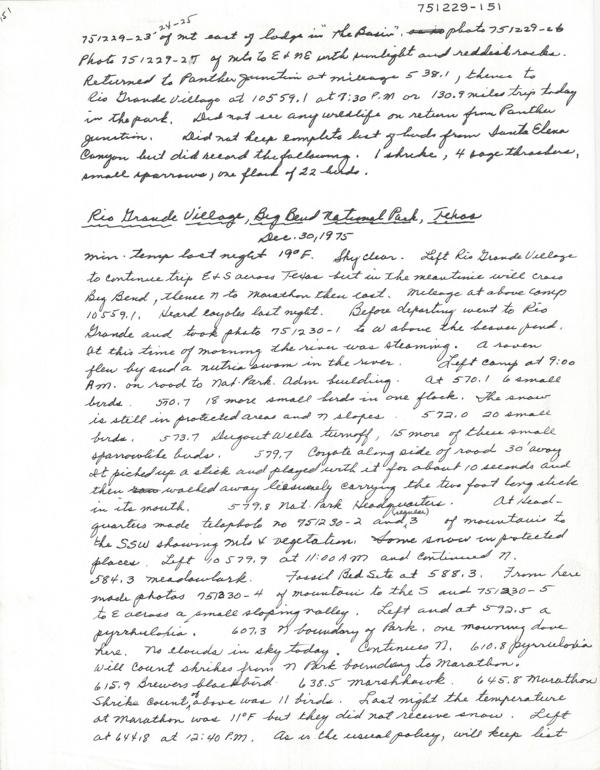 151
751229-151
751229-23 24-25 of mt east of lodge in "The Basin". photo 751229-26
Photo 751229-27 of mts to E & NE with sunlight and reddish rocks.
Returned to Panther Junction at mileage 538.1, thence to
Rio Grande Village at 10559.1 at 7:30 P.M or 130.9 miles trip today
in the park. Did not see any wildlife on return from Panther
Junction. Did not keep complete list of birds from Santa Elena
Canyon but did record the following. 1 shrike, 4 sage thrashers,
small sparrows, one flock of 22 birds.
Rio Grande Village, Big Bend National Park, Texas
Dec. 30, 1975
Min. temp last night 19°F. Sky clear. Left Rio Grande Village
to continue trip E & S across Texas but in the meantime will cross
Big Bend, thence N to Marathon then east. Mileage at above camp
10559.1. Heard coyotes last night. Before departing went to Rio
Grande and took photo 751230-1 to W above the beaver pond.
At this time of morning the river was steaming. A raven
flew by and a nutria swam in the river. Left camp at 9:00
A.M. on road to Nat. Park. Adm building. At 570.1 6 small
birds. 570.7 18 more small birds in one flock. The snow
is still in protected areas and N slopes. 572.0 20 small
birds. 573.7 Dugout Wells turnoff, 15 more of these small
sparrowlike birds. 579.7 Coyote along side of road 30' away
It picked up a stick and played with it for about 10 seconds and
then walked away leisurely carrying the two foot long stick
in its mouth. 579.8 Nat. Park Headquarters. At Head-
quarters made telephoto no 751230-2 and 3 (regular) of mountains to
the SSW showing mts & vegetation. Some snow in protected
places. Left 10579.9 at 11:00 AM and continued N.
584.3 meadowlark. Fossil Bed Site at 588.3. From here
made photos 751230-4 of mountain to the S and 751230-5
to E across a small sloping valley. Left and at 592.5 a
pyrrhuloxia. 607.3 N boundary of Park, one mourning dove
here. No clouds in sky today. Continues N. 610.8 pyrruloxia
Will count shrikes from N Park boundary to Marathon.
615.9 Brewers blackbird 638.5 Marshhawk. 645.8 Marathon
Shrike count of above was 11 birds. Last night the temperature
at Marathon was 11°F but they did not receive snow. Left
at 644.8 at 12:40 P.M. As is the usual policy, will keep list